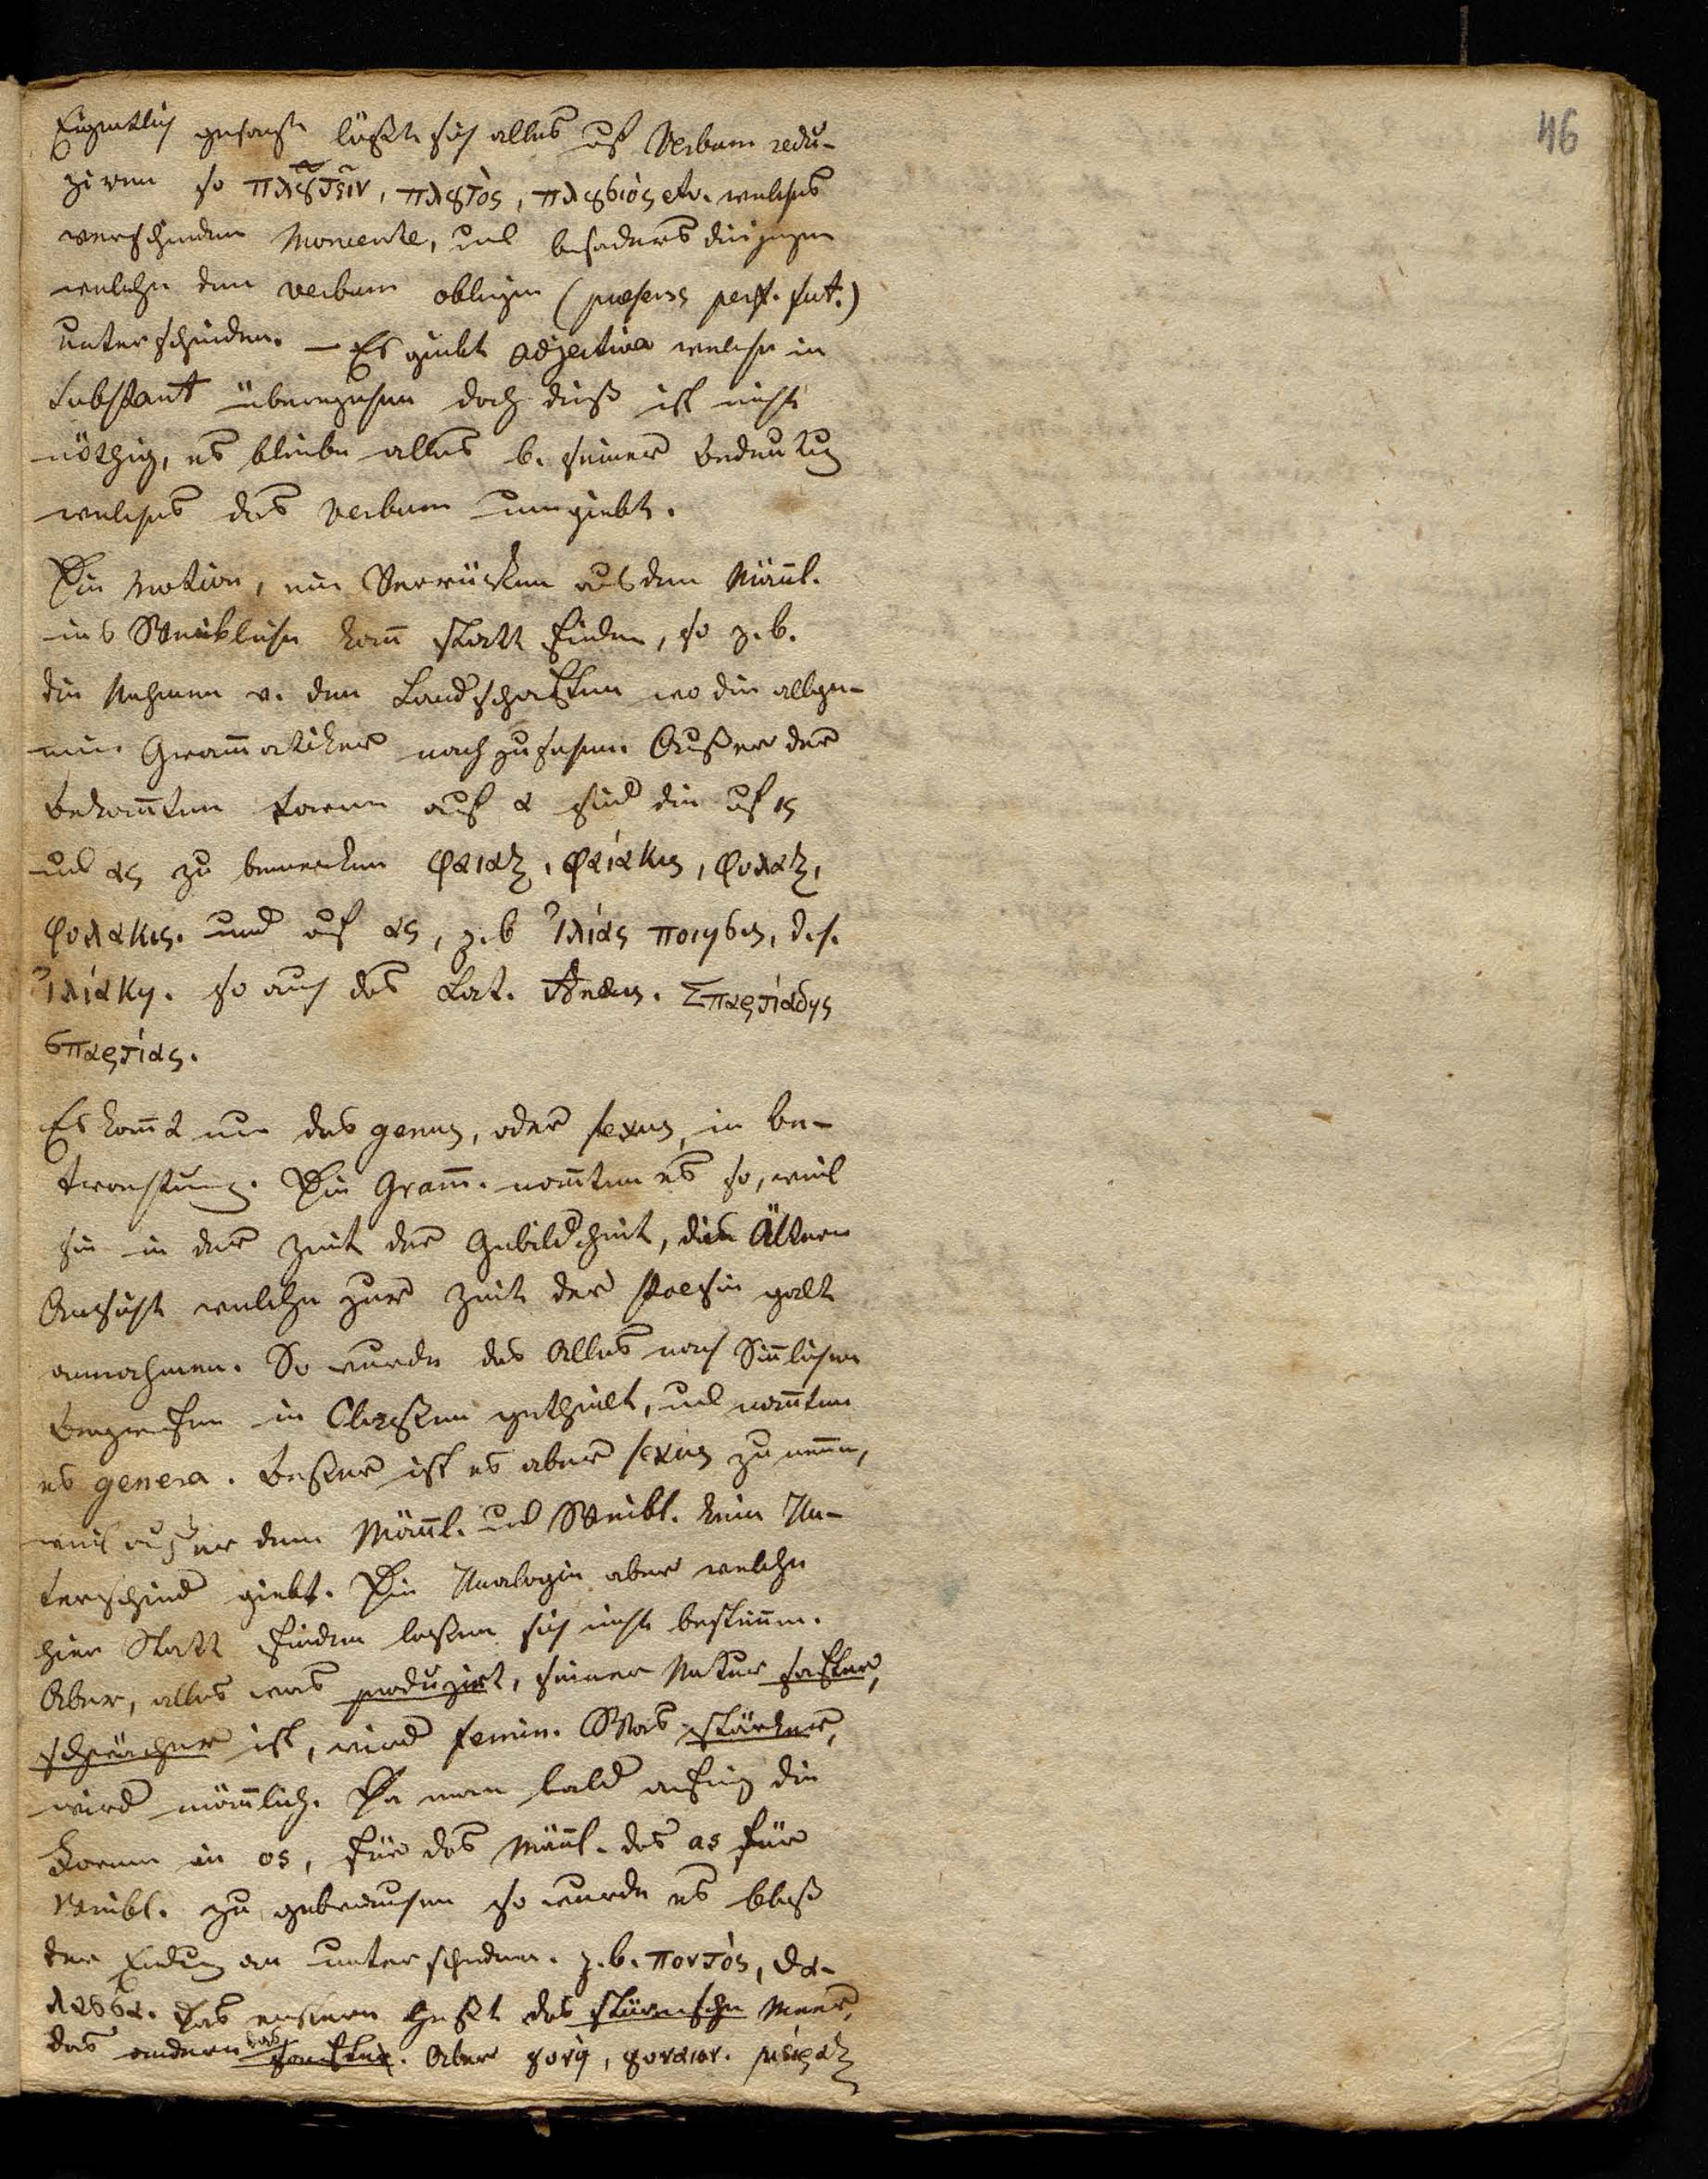 46
Eigentlich gesagt läßt sich alles auf Verbum redu-
ziren so πλουτειν, πλουτος, πλουσιος etc. welches
verschiedene Momente, und besonders diejenigen
welche dem verbum obliegen (praesens perf. fut.)
unterscheiden. — Es giebt adjectiva welche in
Substant übergehen doch dieß ist nicht
nöthig, es bleibe alles b. seiner Bedeutung
welches das verbum umgiebt.
Die Motion, ein Verrücken aus dem Männl.
ins Weibliche kann statt finden, so z. b.
die Nahmen v. den Landschaften wo die allge-
mein Grammatiker nachzusehen. Außer der
bekannten Form auf α sind die auf ις
und ας zu bemerken Φαιαξ, Φαίακις, φυλαξ,
φυλακις. und auf ας, z. b Ἰλιάς ποιησις, d. h.
Ἰλιάκη. so auch das Lat. Σπαρτιάδης
σπαρτίας.
Es kommt nun das genus, oder sexus, in be-
trachtung. Die Gramm. nannten es so, weil
sie in der Zeit der Gebildtheit, die Ältere
Ansicht welche zur Zeit der Poesie galt
annahmen. So wurde das Alles nach Sinnlichen
Begriffen in Classen getheilt, und nannten
es genera. Beßer ist es aber sexus zu nennen,
weil außer dem Männl. und Weibl. kein Un-
terschied giebt. Die Analogien aber welche
hier Statt finden laßen sich nicht bestimmen.
Aber, alles was produzirt, seiner Natur sanfter,
schwächer ist, wird femin. Was stärker,
wird männlich. Da man bald anfing die
Form in os, für das Männl. das as für
Weibl. zu gebrauchen so wurde es bloß
der Endung an unterschieden. z. b. ποντος, θα-
λασσα. Das erstere heißt das stürmische Meer,
das andere das sanfte. Aber γυνή, γυναιον. μείραξ